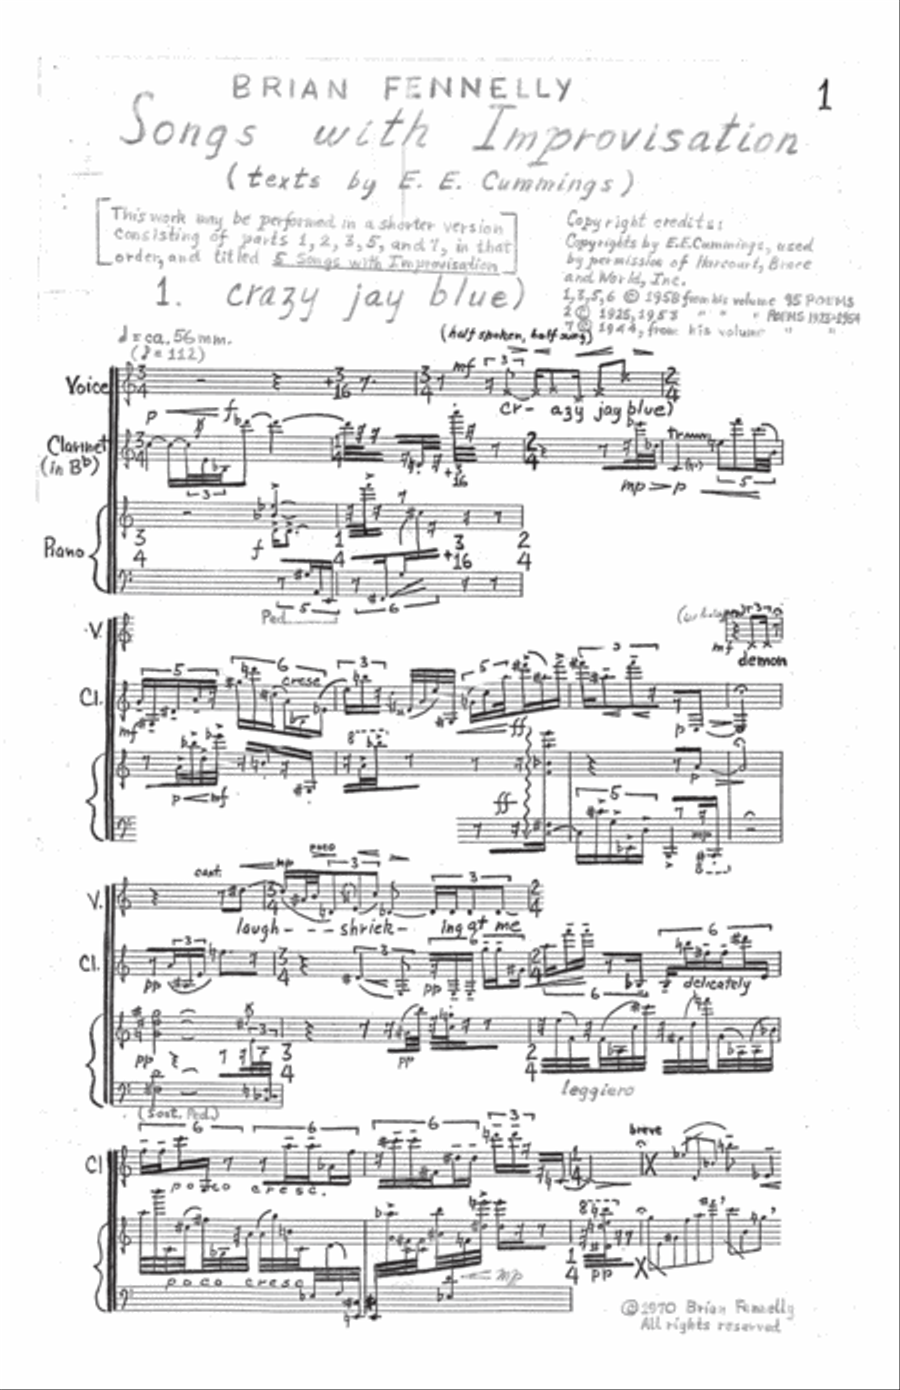 BRIAN FENNELLY
1
Songs with Improvisation
(texts by E. E. Cummings)
This work may be performed in a shorter version
consisting of parts 1, 2, 3, 5, and 7, in that
order, and titled 5 Songs with Improvisation
Copyright credits:
Copyrights by E.E. Cummings, used
by permission of Harcourt, Brace
and World, Inc.
1,3,5,6 © 1958 from his volume 95 POEMS
2 © 1925, 1953 " " " POEMS 1923-1954
7 © 1944, from his volume " "
1. crazy jay blue)
♩ = ca. 56 mm.
(♪ = 112)
(half spoken, half sung)
Voice
mf
3
cr- azy jay blue)
p f
Clarinet
(in Bb)
3
mp > p
5
Piano
f
+3
16
5
6
Ped.
V.
mf
demon
Cl.
5
6
cresc
3
5
3
mf
ff
p
p mf
8
ff
5
p
8
V.
cant.
mp
poco
3
3
laugh- - - - shriek- ing at me
Cl.
3
3
6
6
pp
pp
6
delicately
pp
3
pp
leggiero
(Sost. Ped.)
Cl
6
6
6
3
breve
poco cresc.
poco cresc
mp
8
pp
©1970 Brian Fennelly
All rights reserved